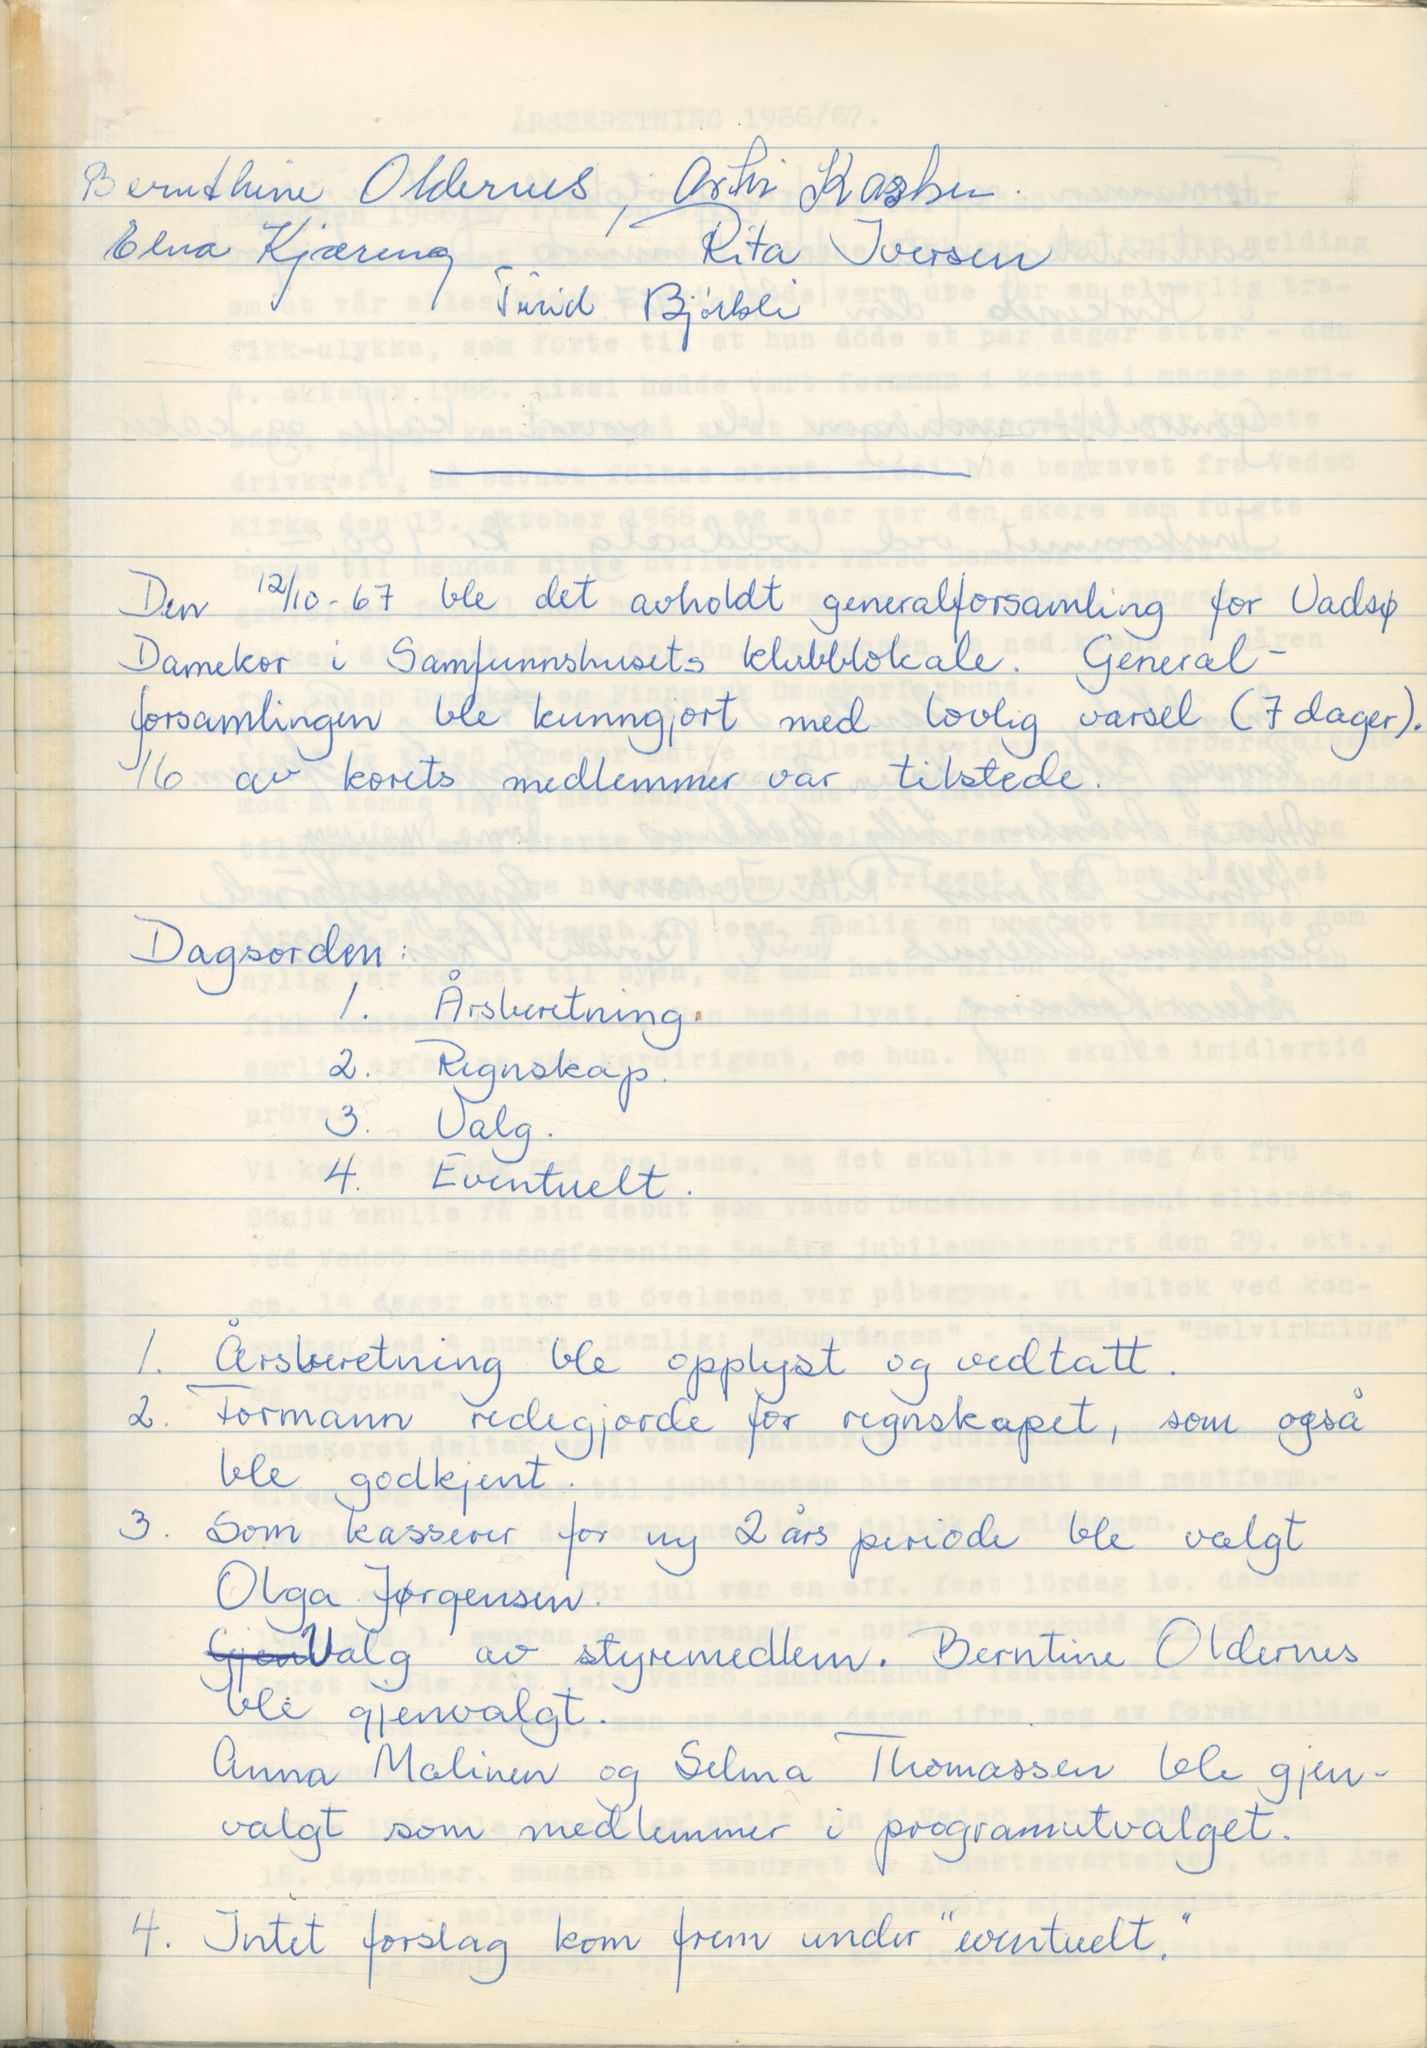 Bernthine Oldernes, 
Elna Kjæreng Rita Iversen
Turid Bjørkli
Den 12/10-67 ble det avholdt generalforsamling for Vadsø
Damekor i Samfunnshusets klubblokale. General-
forsamlingen ble kunngjort med lovlig varsel (7 dager).
16 av korets medlemmer var tilstede.
Dagsorden:
1. Årsberetning.
2. Regnskap.
3. Valg.
4. Eventuelt.
1. Årsberetning ble opplyst og vedtatt.
2. Formann redegjorde for regnskapet, som også
ble godkjent.
3. Som kasserer for ny 2 års periode ble valgt
Olga Jørgensen.
Gjen Valg av styremedlem. Berntine Oldernes
ble gjenvalgt.
Anna Malinen og Selma Thomassen ble gjen-
valgt som medlemmer i programutvalget.
4. Intet forslag kom frem under "eventuelt."